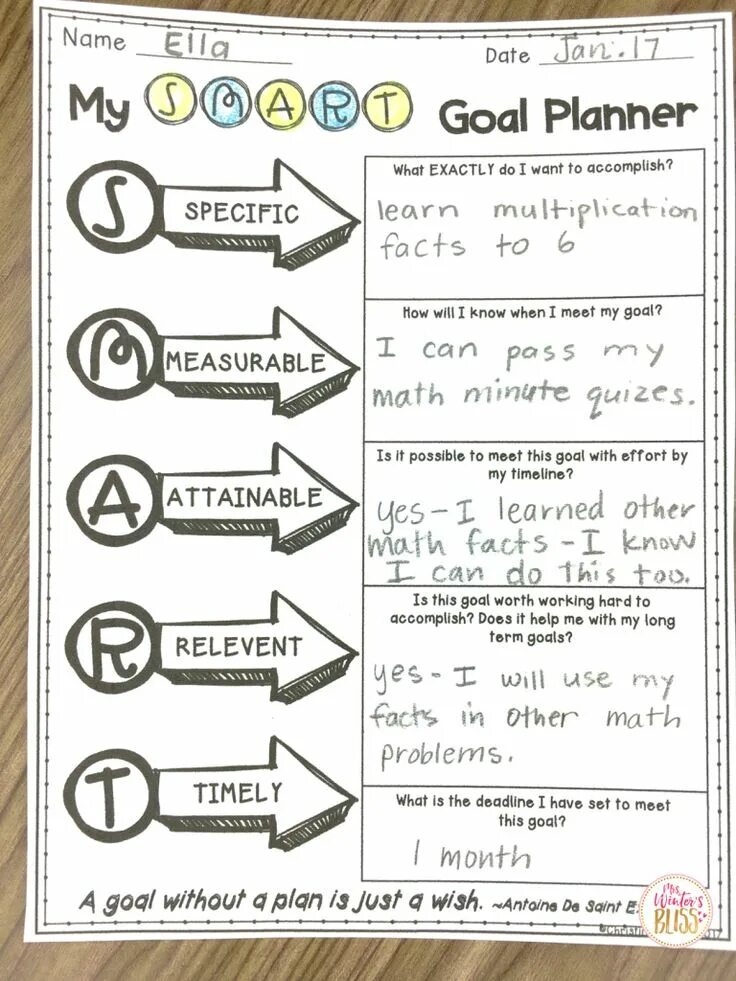 Name Ella
Date Jan. 17
My SMART Goal Planner
S SPECIFIC
What EXACTLY do I want to accomplish?
learn multiplication
facts to 6
M MEASURABLE
How will I know when I meet my goal?
I can pass my
math minute quizes.
A ATTAINABLE
Is it possible to meet this goal with effort by
my timeline?
yes - I learned other
math facts - I know
I can do this too.
R RELEVENT
Is this goal worth working hard to
accomplish? Does it help me with my long
term goals?
yes - I will use my
facts in other math
problems.
T TIMELY
What is the deadline I have set to meet
this goal?
1 month
A goal without a plan is just a wish. ~Antoine De Saint E.
Mrs.
Winter's
BLISS